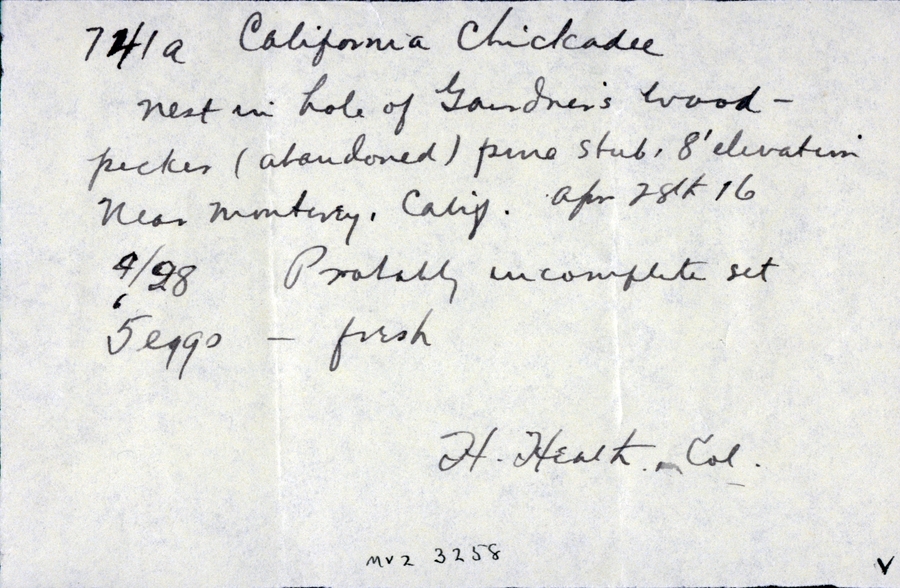 741a California Chickadee
Nest in hole of Gairdner's Wood-
pecker (abandoned) pine stub, 8' elevation
Near Monterey, Calif. Apr 28th 16
4/28 Probably incomplete set
5 eggs — fresh
H. Heath. Col.
MVZ 3258